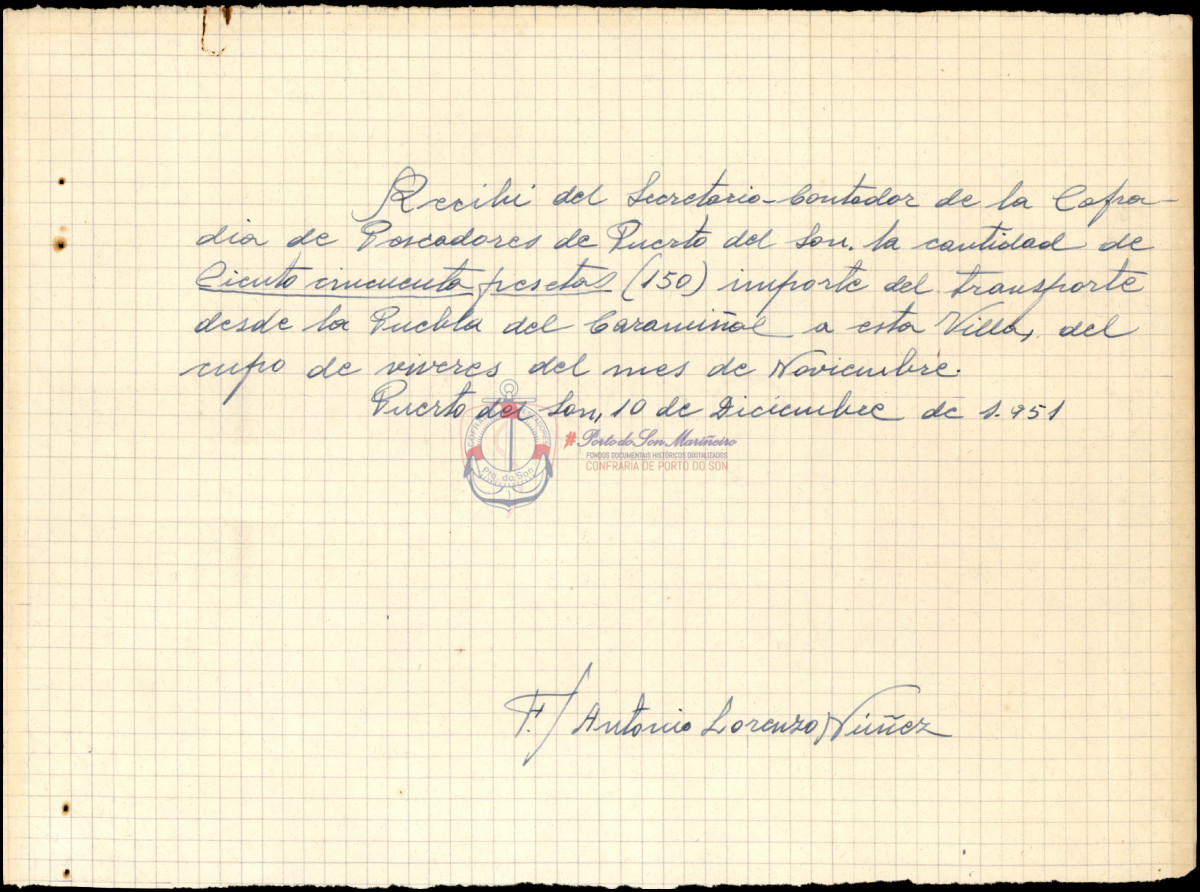 Recibi del Secretario-Contador de la Cofra-
dia de Pescadores de Puerto del Son. la cantidad de
Ciento cincuenta pesetas (150) importe del transporte
desde la Puebla del Caramiñal a esta Villa, del
cupo de viveres del mes de Noviembre.
Puerto del Son, 10 de Diciembre de 1.951
#Porto do Son Mariñeiro
FONDOS DOCUMENTAIS HISTÓRICOS DIXITALIZADOS
CONFRARIA DE PORTO DO SON
Pto. do Son
F./ Antonio Lorenzo Núñez